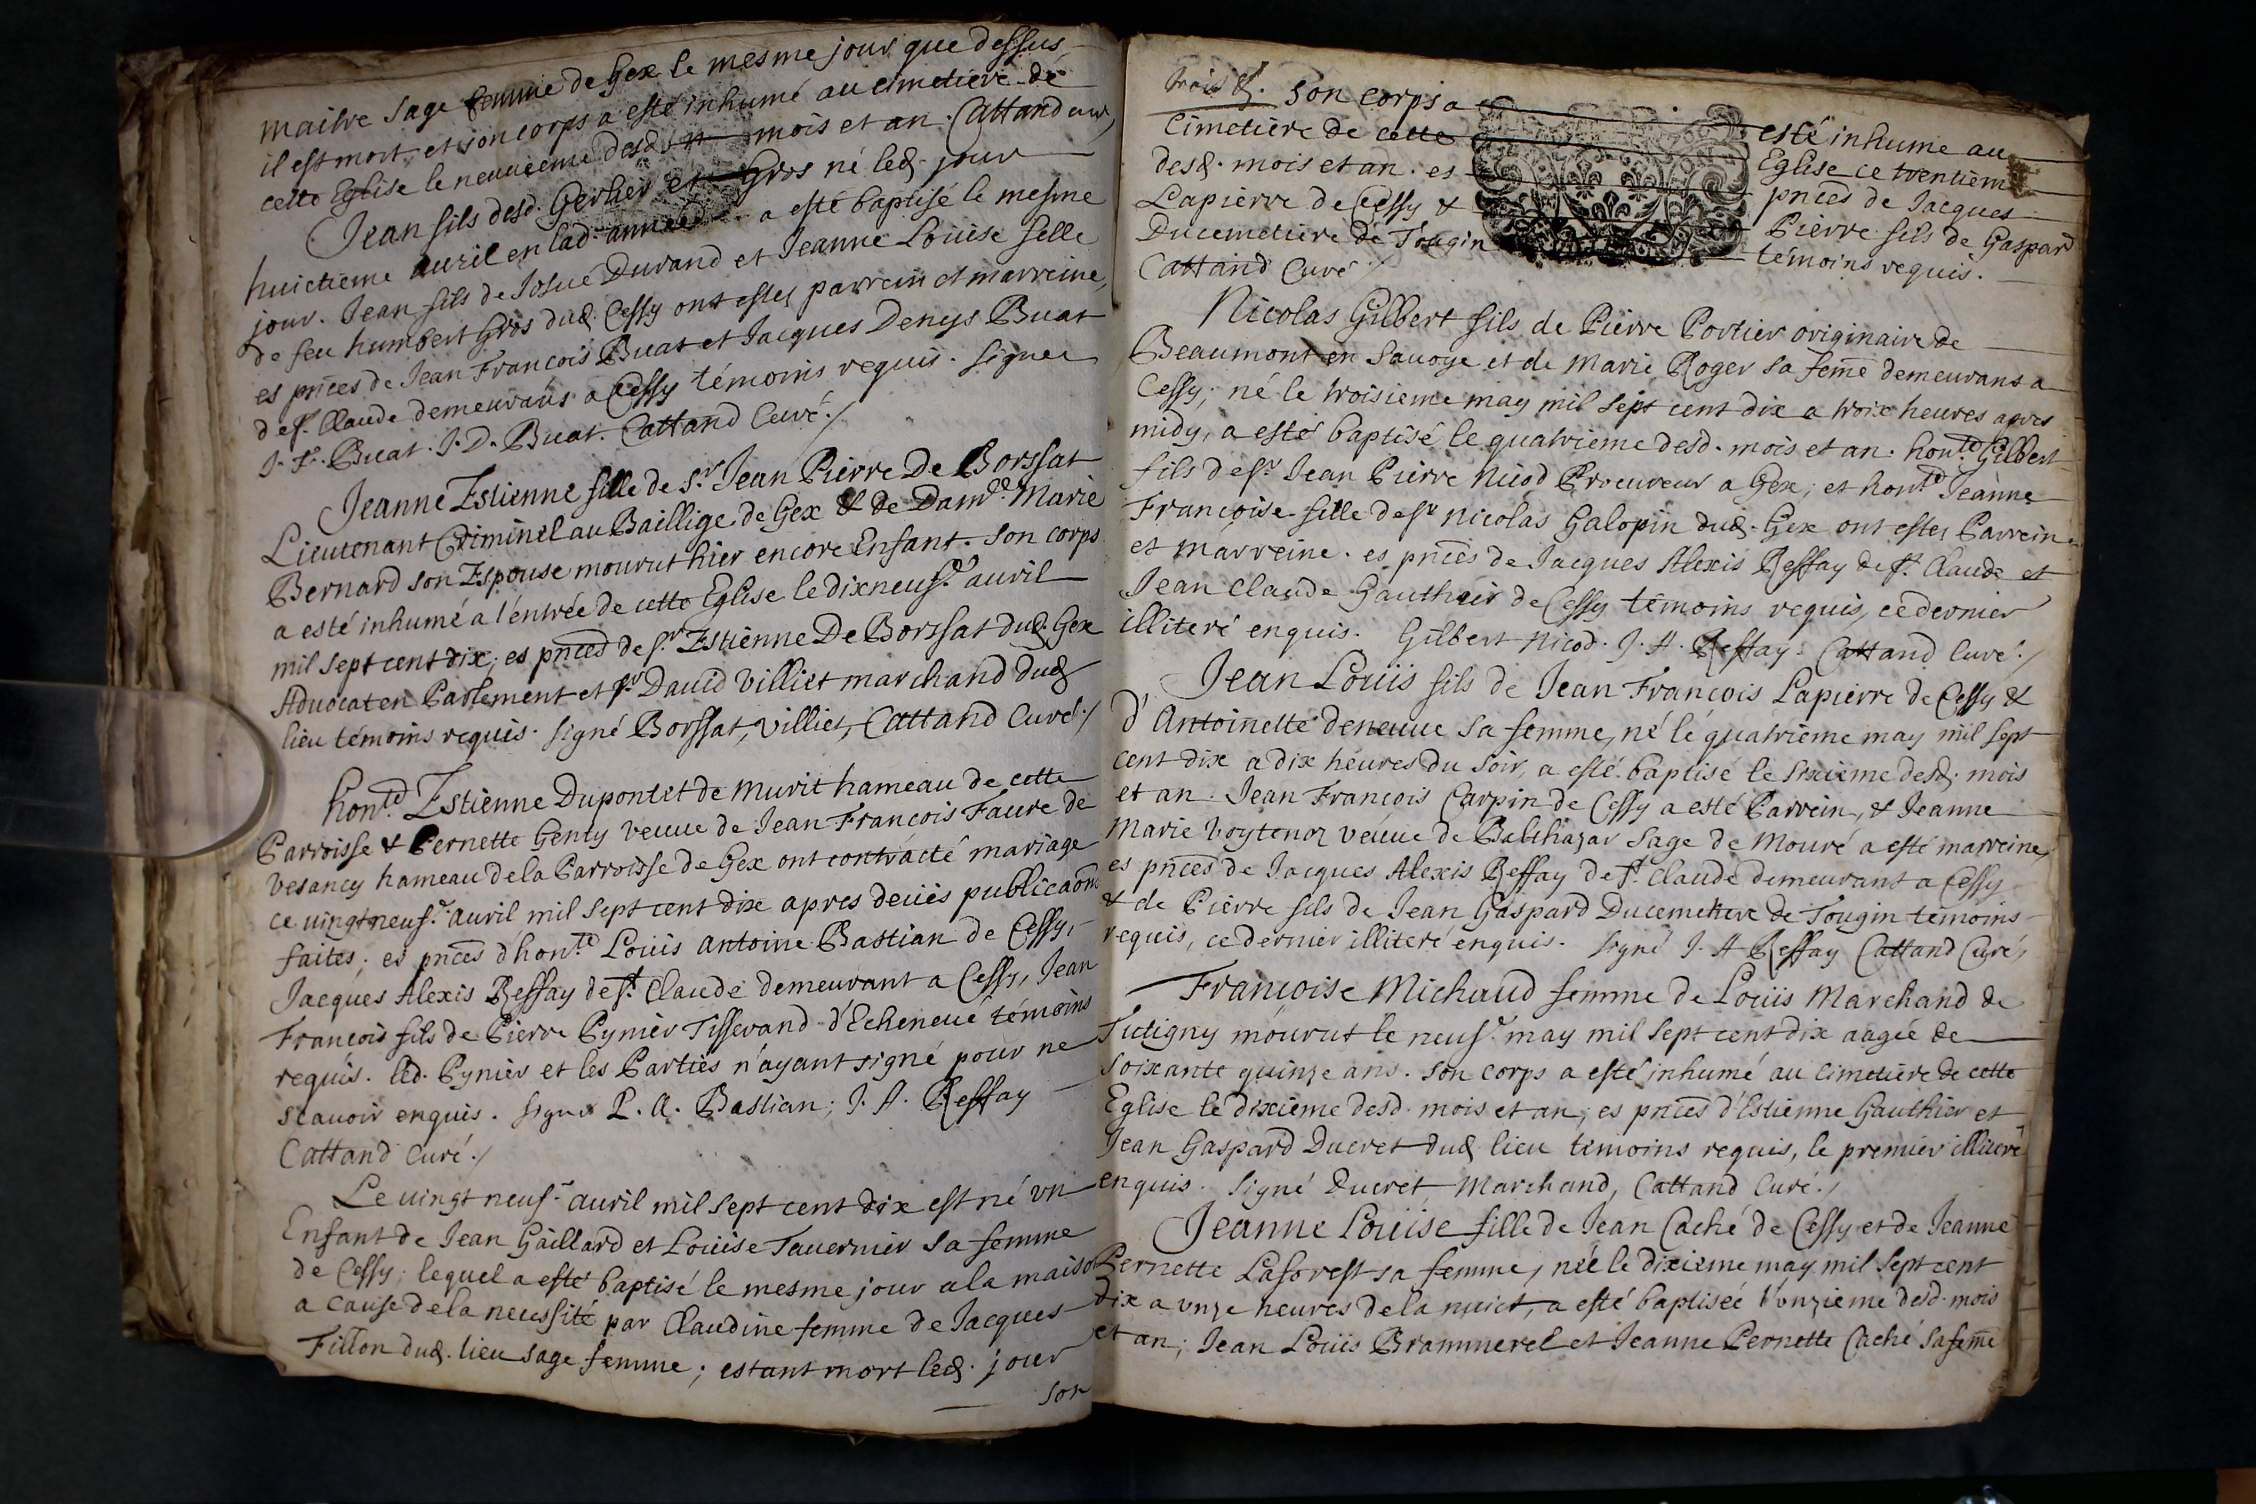 maitre sage femme de Gex le mesme jour que dessus
il est mort, et son corps a esté inhumé au cimetiere de
cette Eglise le neuuieme desd. mois et an. Cattand curé,
Jean fils desd. Gerlier et Gros né led. jour
huictieme auril en lad. année a esté baptisé le mesme
jour. Jean fils de Josué Durand et Jeanne Loüise fille
de feu humbert Gros dud. Cessy ont estes parrein et marreine,
es pñces de Jean François Buat et Jacques Denys Buat
de st. Claude demeurans a Cessy témoins requis. Signer
J. F. Buat. J. D. Buat. Cattand Curé./
Jeanne Estienne fille de Sr. Jean Pierre De Borssat
Lieutenant Criminel au Baillige de Gex & de Damlle. Marie
Bernard son Espouse mourut hier encore Enfant. Son corps
a esté inhumé a l'entrée de cette Eglise le dixneufe. auril
mil sept cent dix; es pñces de sr. Estienne De Borssat dud. Gex
Aduocat en Parlement et sr David Villiet marchand dud.
lieu témoins requis. Signé Borssat, Villiet, Cattand Curé./
honte. Estienne Dupontet de Murit hameau de cette
Parroisse & Pernette Genty veuue de Jean François Faure de
Vesancy hameau de la Parroisse de Gex ont contracté mariage
ce uingtneufe. auril mil sept cent dix apres deües publicaõns
faites; es pñces d'honte. Loüis Antoine Bastian de Cessy,
Jacques Alexis Reffay de st. Claude demeurant a Cessy, Jean
François fils de Pierre Pynier Tisserand d'Echeneue témoins
requis. led. Pynier et les Parties n'ayant signé pour ne
scauoir enquis. Signé L. A. Bastian; J. A. Reffay
Cattand Curé./
Le uingt neufe. auril mil sept cent dix est né vn
Enfant de Jean Gaillard et Loüise Tauernier sa femme
de Cessy; lequel a esté baptisé le mesme jour a la maison
a cause de la necessité par Claudine femme de Jacques
Fillon dud. lieu sage femme; estant mort led. jour
son
trois d. Son corps a esté inhumé au
Cimetiere de cette Eglise ce trentieme
desd. mois et an. es pñces de Jacques
Lapierre de Cessy & Pierre fils de Gaspard
Ducemetiere de Tougin témoins requis.
Cattand Curé /
Nicolas Gilbert fils de Pierre Portier originaire de
Beaumont en Sauoye et de Marie Roger sa fem̃e demeurans a
Cessy; né le troisieme may mil sept cent dix a troix heures apres
midy, a esté baptisé le quatrieme desd. mois et an. honte. Gilbert
fils de sr. Jean Pierre Nicod Procureur a Gex; et honte. Jeanne
Françoise fille de sr Nicolas Galopin dud. Gex ont estes Parrein
et marreine. es pñces de Jacques Alexis Reffay de st. Claude et
Jean Claude Gauthier de Cessy témoins requis, ce dernier
illiteré enquis. Gilbert Nicod. J. A. Reffay. Cattand Curé./
Jean Loüis fils de Jean François Lapierre de Cessy &
d'Antoinette deneuue sa femme, né le quatrieme may mil sept
cent dix a dix heures du soir, a esté baptisé le sixieme desd. mois
et an. Jean François Carpin de Cessy a esté Parrein, & Jeanne
Marie Voytenoz veüue de Balthazar Sage de Mouré a esté marreine,
es pñces de Jacques Alexis Reffay de st. Claude demeurant a Cessy
& de Pierre fils de Jean Gaspard Ducemetiere de Tougin temoins
requis, ce dernier illiteré enquis. Signé J. A Reffay Cattand Curé,
Françoise Michaud femme de Loüis Marchand de
Tutigny mourut le neufe. may mil sept cent dix aagée de
soixante quinze ans. Son corps a esté inhumé au cimetiere de cette
Eglise le dixieme desd. mois et an; es pñces d'Estienne Gauthier et
Jean Gaspard Ducret dud. lieu témoins requis, le premier illiteré
enquis. Signé Ducret Marchand, Cattand Curé./
Jeanne Loüise fille de Jean Caché de Cessy et de Jeanne
Pernette Laforest sa femme, née le dixieme may mil sept cent
dix a vnze heures de la nuict, a esté baptisée l'vnzieme desd. mois
et an; Jean Loüis Brammerel et Jeanne Pernette Caché sa fem̃e